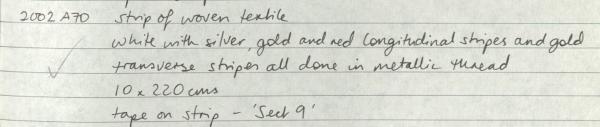 2002 A70 strip of woven textile
white with silver, gold and red longitudinal stripes and gold
transverse stripes all done in metallic thread
10 x 220 cms
tape on strip - 'Sect 9'